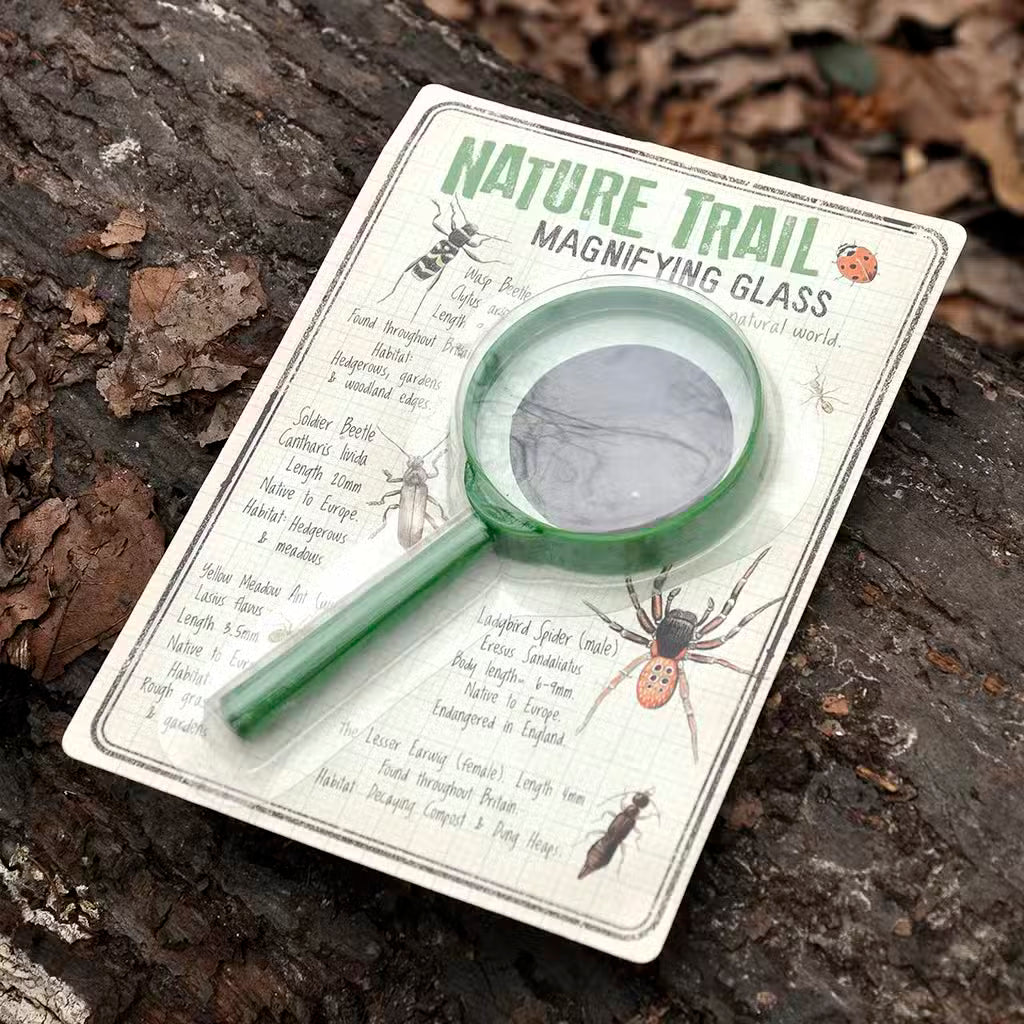 NATURE TRAIL
MAGNIFYING GLASS
natural world.
Wasp Beetle
Clytus
Length
Found throughout Britain
Habitat:
Hedgerows, gardens
& woodland edges.
Soldier Beetle
Cantharis livida
Length 20mm
Native to Europe.
Habitat: Hedgerows
& meadows
Yellow Meadow Ant
Lasius flavus
Length 3.5mm
Native to
Habitat:
Rough
& gardens
Ladybird Spider (male)
Eresus Sandaliatus
Body length= 6-9mm.
Native to Europe.
Endangered in England.
The Lesser Earwig (female). Length 4mm
Found throughout Britain.
Habitat Decaying Compost & Dung Heaps.